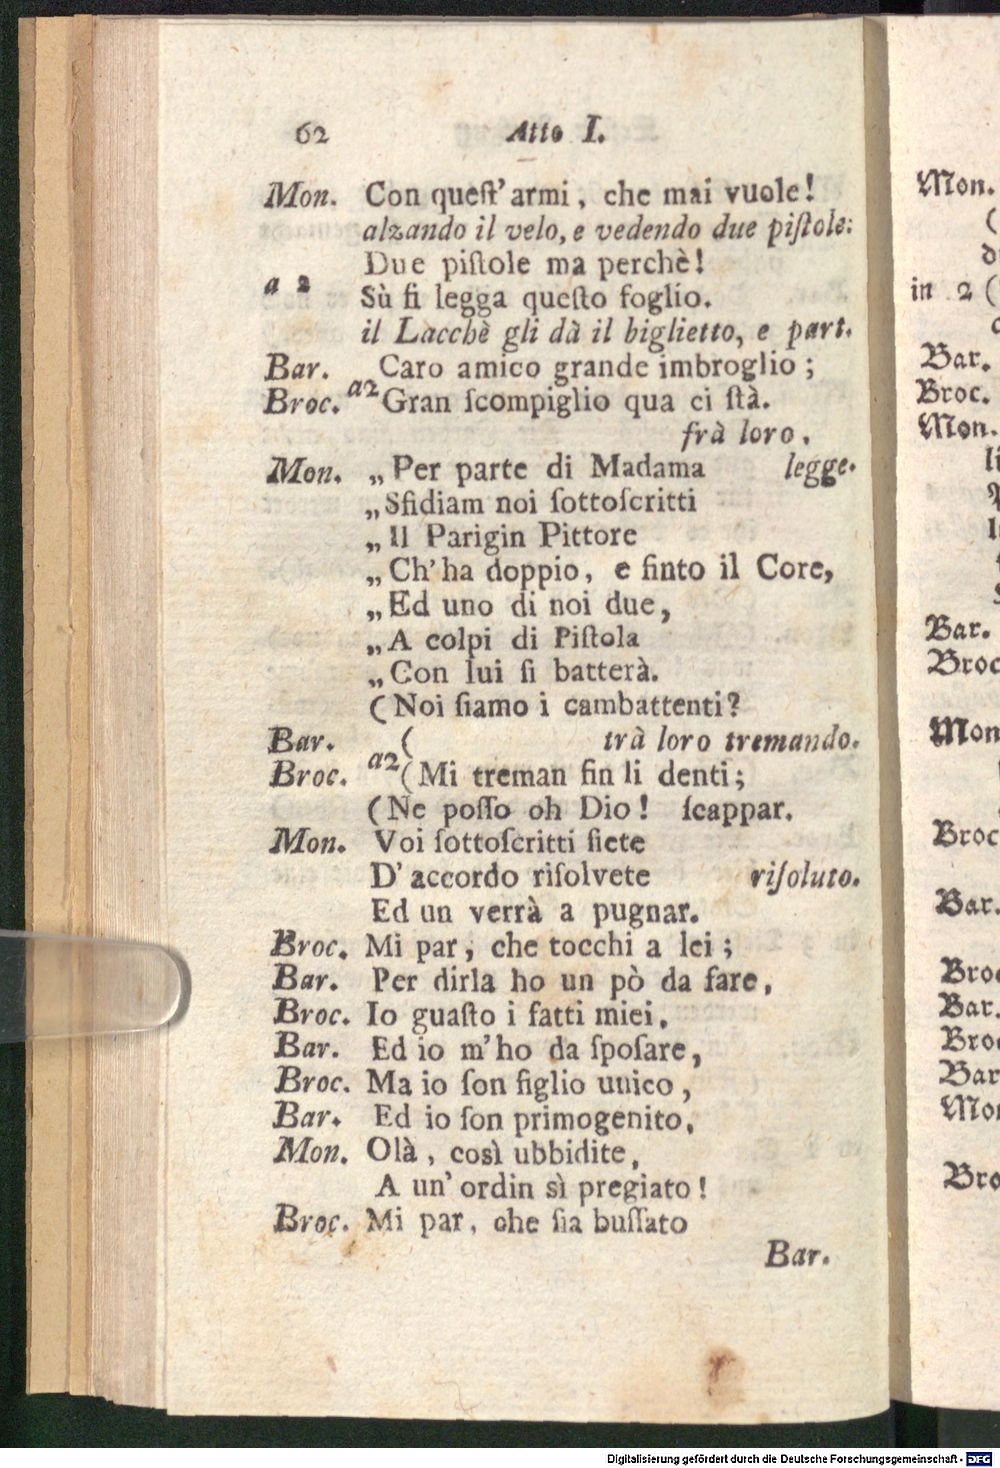 62 Atto I.
Mon. Con queſt' armi, che mai vuole!
alzando il velo, e vedendo due piſtole:
Due piſtole ma perchè!
a 2
Sù ſi legga queſto foglio.
il Lacchè gli dà il biglietto, e part.
Bar. Caro amico grande imbroglio;
a2
Broc. Gran ſcompiglio qua ci ſtà.
frà loro.
Mon. „Per parte di Madama legge.
„Sfidiam noi ſottoſcritti
„Il Parigin Pittore
„Ch' ha doppio, e finto il Core,
„Ed uno di noi due,
„A colpi di Piſtola
„Con lui ſi batterà.
(Noi ſiamo i cambattenti?
Bar. ( trà loro tremando.
a2
Broc. (Mi treman fin li denti;
(Ne poſſo oh Dio! ſcappar.
Mon. Voi ſottoſcritti ſiete
D' accordo riſolvete riſoluto.
Ed un verrà a pugnar.
Broc. Mi par, che tocchi a lei;
Bar. Per dirla ho un pò da fare,
Broc. Io guaſto i fatti miei,
Bar. Ed io m' ho da ſpoſare,
Broc. Ma io ſon figlio unico,
Bar. Ed io ſon primogenito,
Mon. Olà, così ubbidite,
A un' ordin sì pregiato!
Broc. Mi par, che ſia buſſato
Bar.
Mon.
(
in 2 (
Bar.
Broc.
Mon.
Bar.
Broc
Mon
Broc
Bar.
Broc
Bar.
Broc
Bar
Mon
Bro
Digitalisierung gefördert durch die Deutsche Forschungsgemeinschaft - DFG